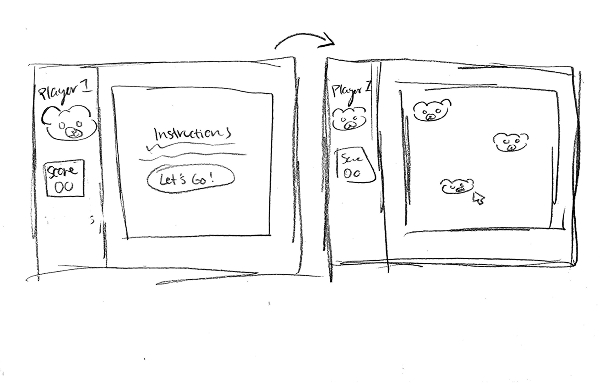 Player 1
Score
00
Instructions
Let's Go!
Player 1
Score
00